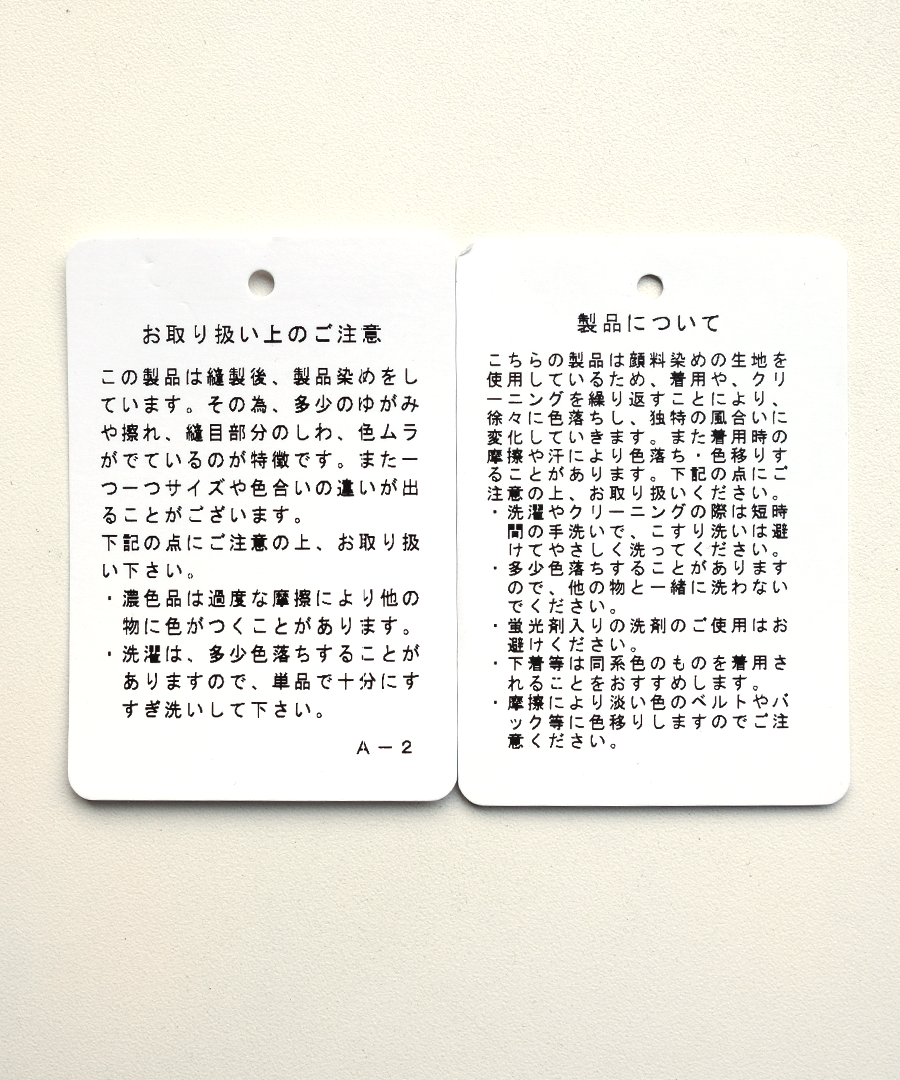 お取り扱い上のご注意
この製品は縫製後、製品染めをし
ています。その為、多少のゆがみ
や擦れ、縫目部分のしわ、色ムラ
がでているのが特徴です。また一
つ一つサイズや色合いの違いが出
ることがございます。
下記の点にご注意の上、お取り扱
い下さい。
・濃色品は過度な摩擦により他の
物に色がつくことがあります。
・洗濯は、多少色落ちすることが
ありますので、単品で十分にす
すぎ洗いして下さい。
A－2
製品について
こちらの製品は顔料染めの生地を
使用しているため、着用や、クリ
ーニングを繰り返すことにより、
徐々に色落ちし、独特の風合いに
変化していきます。また着用時の
摩擦や汗により色落ち・色移りす
ることがあります。下記の点にご
注意の上、お取り扱いください。
・洗濯やクリーニングの際は短時
間の手洗いで、こすり洗いは避
けてやさしく洗ってください。
・多少色落ちすることがあります
ので、他の物と一緒に洗わない
でください。
・蛍光剤入りの洗剤のご使用はお
避けください。
・下着等は同系色のものを着用さ
れることをおすすめします。
・摩擦により淡い色のベルトやバ
ック等に色移りしますのでご注
意ください。